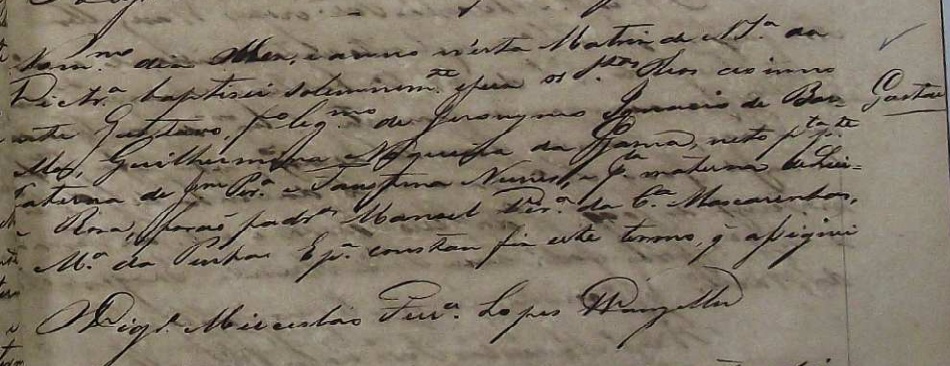 Nom.mo dia Mez, e anno n'esta Matriz de N. S.ª da
Victr.ª baptisei solemnem.te e puz os S.tos Oleos ao inno-
cente Gustavo, f.º leg.mo de Jeronymo Ignacio de
Guilhermina Nogueira da Gama, neto p.la p.te
Paterna de J.m Per.ª e Faustina Nunes, e p.la materna de
Rosa, forão padr.os Manoel Per.ª da C.ª Mascarenhas,
M.ª da Penha E p.ª constar fiz este termo, q̃ assignei
O Vigr.º Mieceslào Ferr.ª Lopes Wanzeller
Gustavo